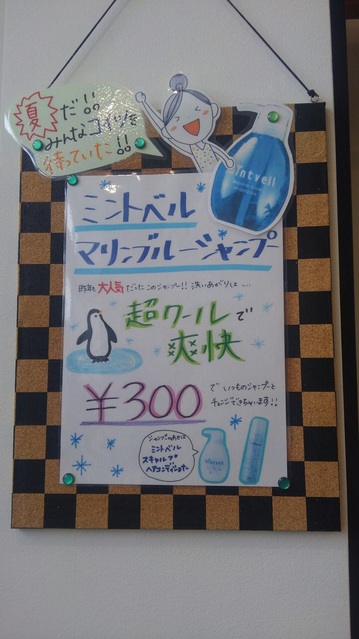 夏だ!!
みんなコイツを
待っていた!!
mintvell
ミントベル
マリンブルーシャンプー
昨年も大人気だったこのシャンプー!! 洗いあがりは…
超クールで
爽快
¥300
で いつものシャンプーと
チェンジできちゃいます!!
シャンプーのあとは
ミントベル
スキャルプ
ヘアコンディショナー